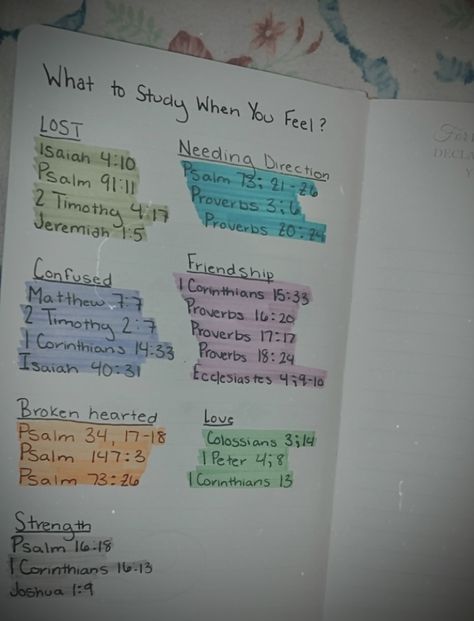 What to Study When You Feel?
LOST
Isaiah 4:10
Psalm 91:11
2 Timothy 4:17
Jeremiah 1:5
Needing Direction
Psalm 73; 21-26
Proverbs 3; 6
Proverbs 20:24
Confused
Matthew 7:7
2 Timothy 2:7
1 Corinthians 14:33
Isaiah 40:31
Friendship
1 Corinthians 15:33
Proverbs 16:20
Proverbs 17:17
Proverbs 18:24
Ecclesiastes 4;9-10
Broken hearted
Psalm 34, 17-18
Psalm 147:3
Psalm 73:26
Love
Colossians 3;14
1 Peter 4;8
1 Corinthians 13
Strength
Psalm 16:18
1 Corinthians 16:13
Joshua 1:9